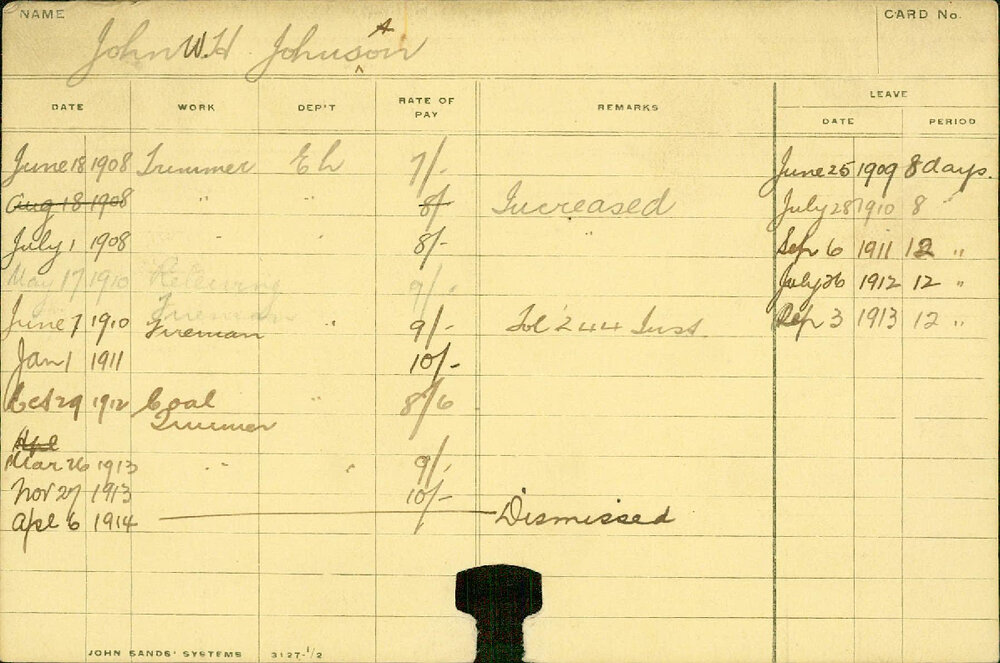 NAME CARD No.
John W. H Johnson
A
^
LEAVE
DATE WORK DEP'T RATE OF PAY REMARKS DATE PERIOD
June 18 1908 Trimmer E L 7/- June 25 1909 8 days.
Aug 18 1908 " " 8/- Increased July 28 1910 8 "
July 1 1908 " " 8/- " Sep 6 1911 12 "
May 17 1910 Relieving Fireman 9/- July 26 1912 12 "
June 7 1910 Fireman " 9/- Fol 244 Inst Sep 3 1913 12 "
Jan 1 1911 10/-
Oct 29 1912 Coal " 8/6
Trimmer
Apl
Mar 26 1913 " " 9/-
Nov 27 1913 10/-
Apl 6 1914 Dismissed
JOHN SANDS' SYSTEMS 3127-1/2